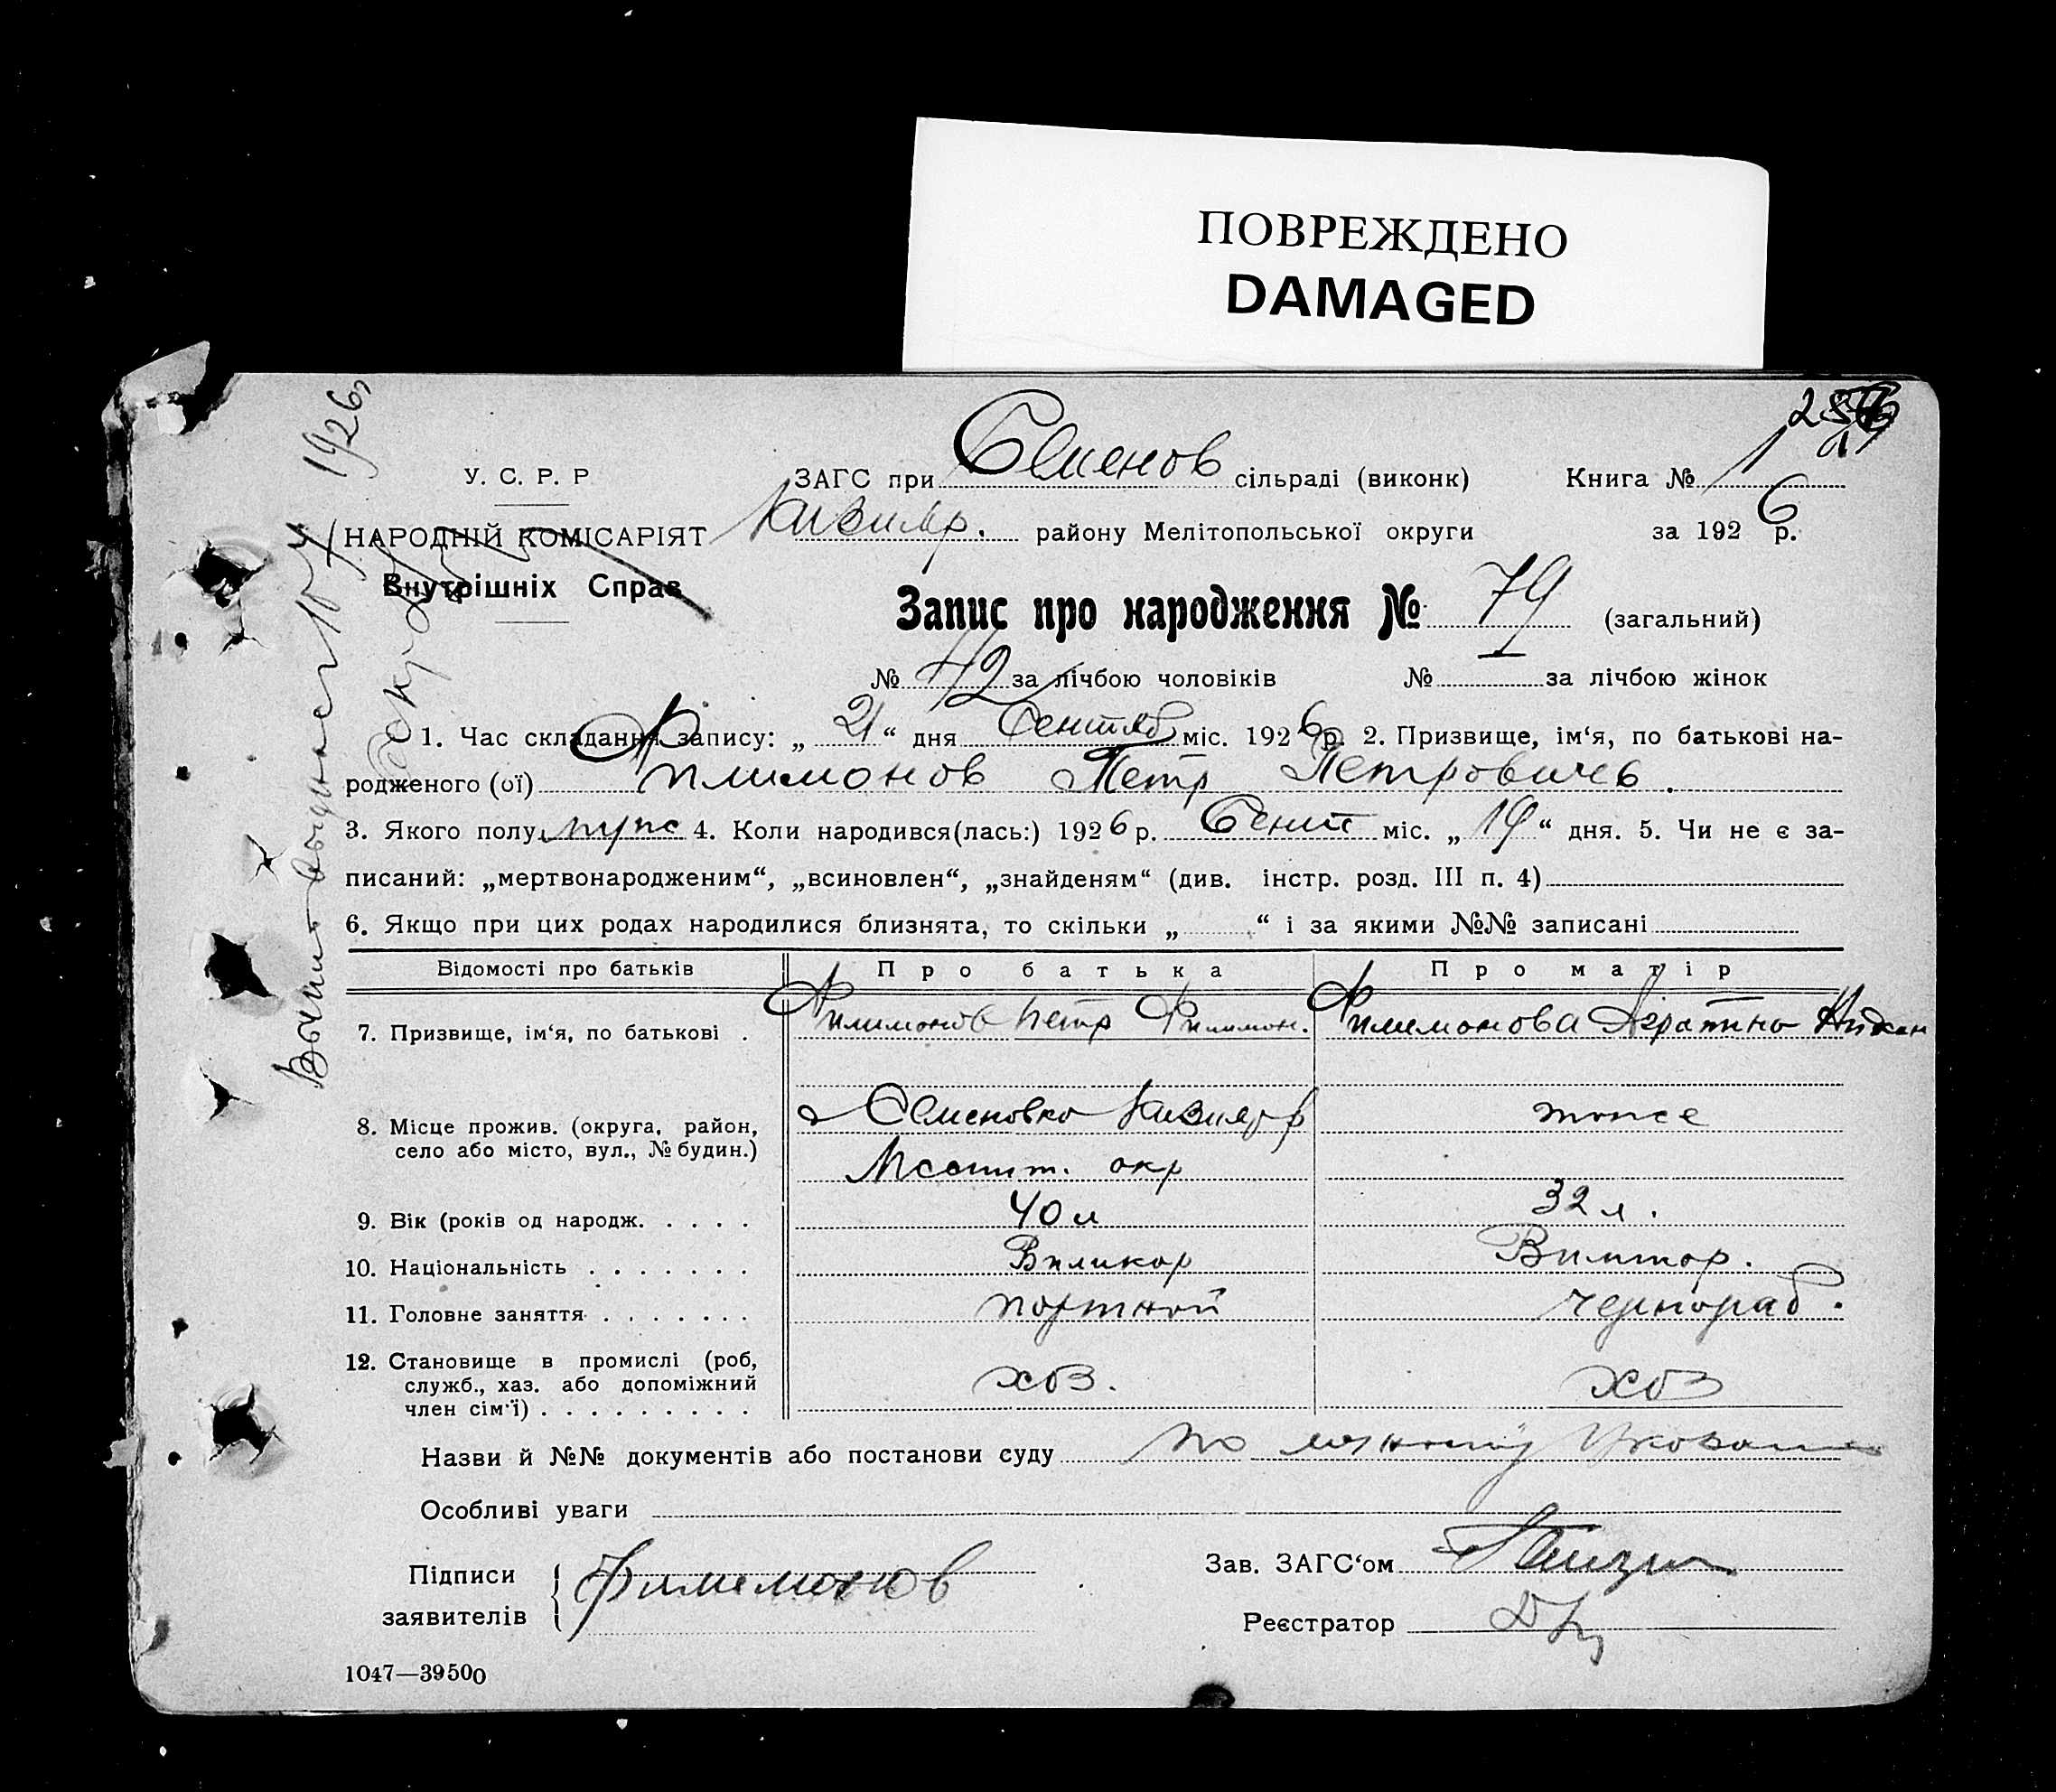 ПОВРЕЖДЕНО
DAMAGED
У. С. Р. Р
ЗАГС при Семенов сільраді (виконк) Книга № 1
НАРОДНІЙ КОМІСАРІЯТ району Мелітопольської округи за 1926 р.
Внутрішніх Справ
Запис про народження № 79 (загальний)
№ 42 за лічбою чоловіків № за лічбою жінок
1. Час складання запису: „ 21 “ дня Сентяб міс. 1926 р. 2. Призвище, ім‘я, по батькові на-
родженого (ої) Филимонов Петр Петрович
3. Якого полу муж 4. Коли народився(лась:) 1926 р. Сент міс. „ 19 “ дня. 5. Чи не є за-
писаний: „мертвонародженим“, „всиновлен“, „знайденям“ (див. інстр. розд. III п. 4)
6. Якщо при цих родах народилися близнята, то скільки „ “ і за якими №№ записані
Відомості про батьків Про батька Про матір
7. Призвище, ім‘я, по батькові . Филимонов Петр Филимон. Филимонова
8. Місце прожив. (округа, район, село або місто, вул., № будин.) Семеновка тоже
Мелит. окр
9. Вік (років од народж. . . . . 40 л 32 л.
10. Національність . . . . . . . Великор
11. Головне заняття . . . . . . . портной чернораб.
12. Становище в промислі (роб, служб., хаз. або допоміжний член сім‘ї) . . . . . . . . . хоз. хоз
Назви й №№ документів або постанови суду по
Особливі уваги
Підписи заявителів Филимонов
Зав. ЗАГС‘ом
Реєстратор
1047—39500
1926